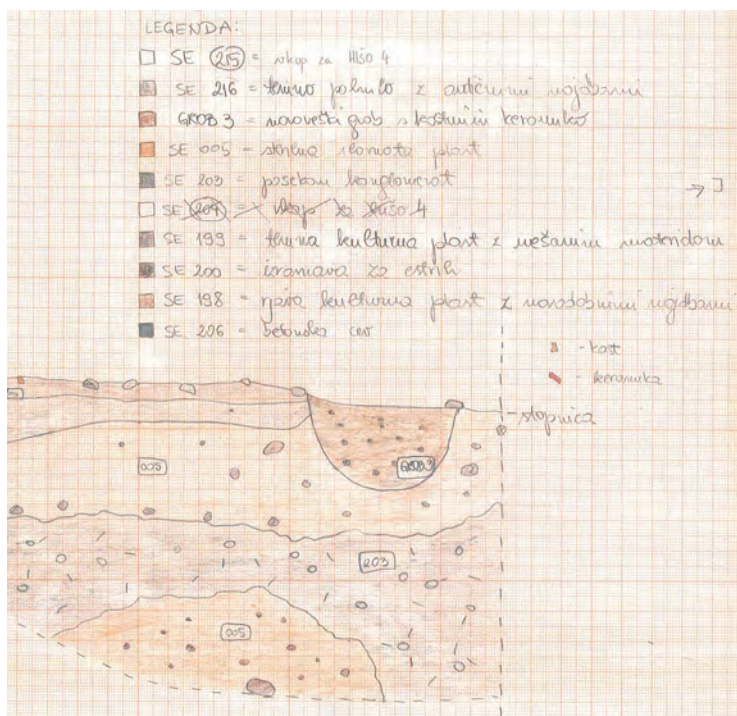 LEGENDA:
SE 215 = vkop za Hišo 4
SE 216 = temno polnilo z antičnimi najdbami
GROB 3 = novoveški grob s kostmi in keramiko
SE 005 = sterilna plast
SE 203 = konglomerat
SE 204 = vkop za Hišo 4
SE 199 = temna kulturna plast z mešanim materialom
SE 200 = izravnava za estrih
SE 198 = rjava kulturna plast z novodobnimi najdbami
SE 206 = betonska cev
- kost
- keramika
- stopnica
005
GROB 3
203
005